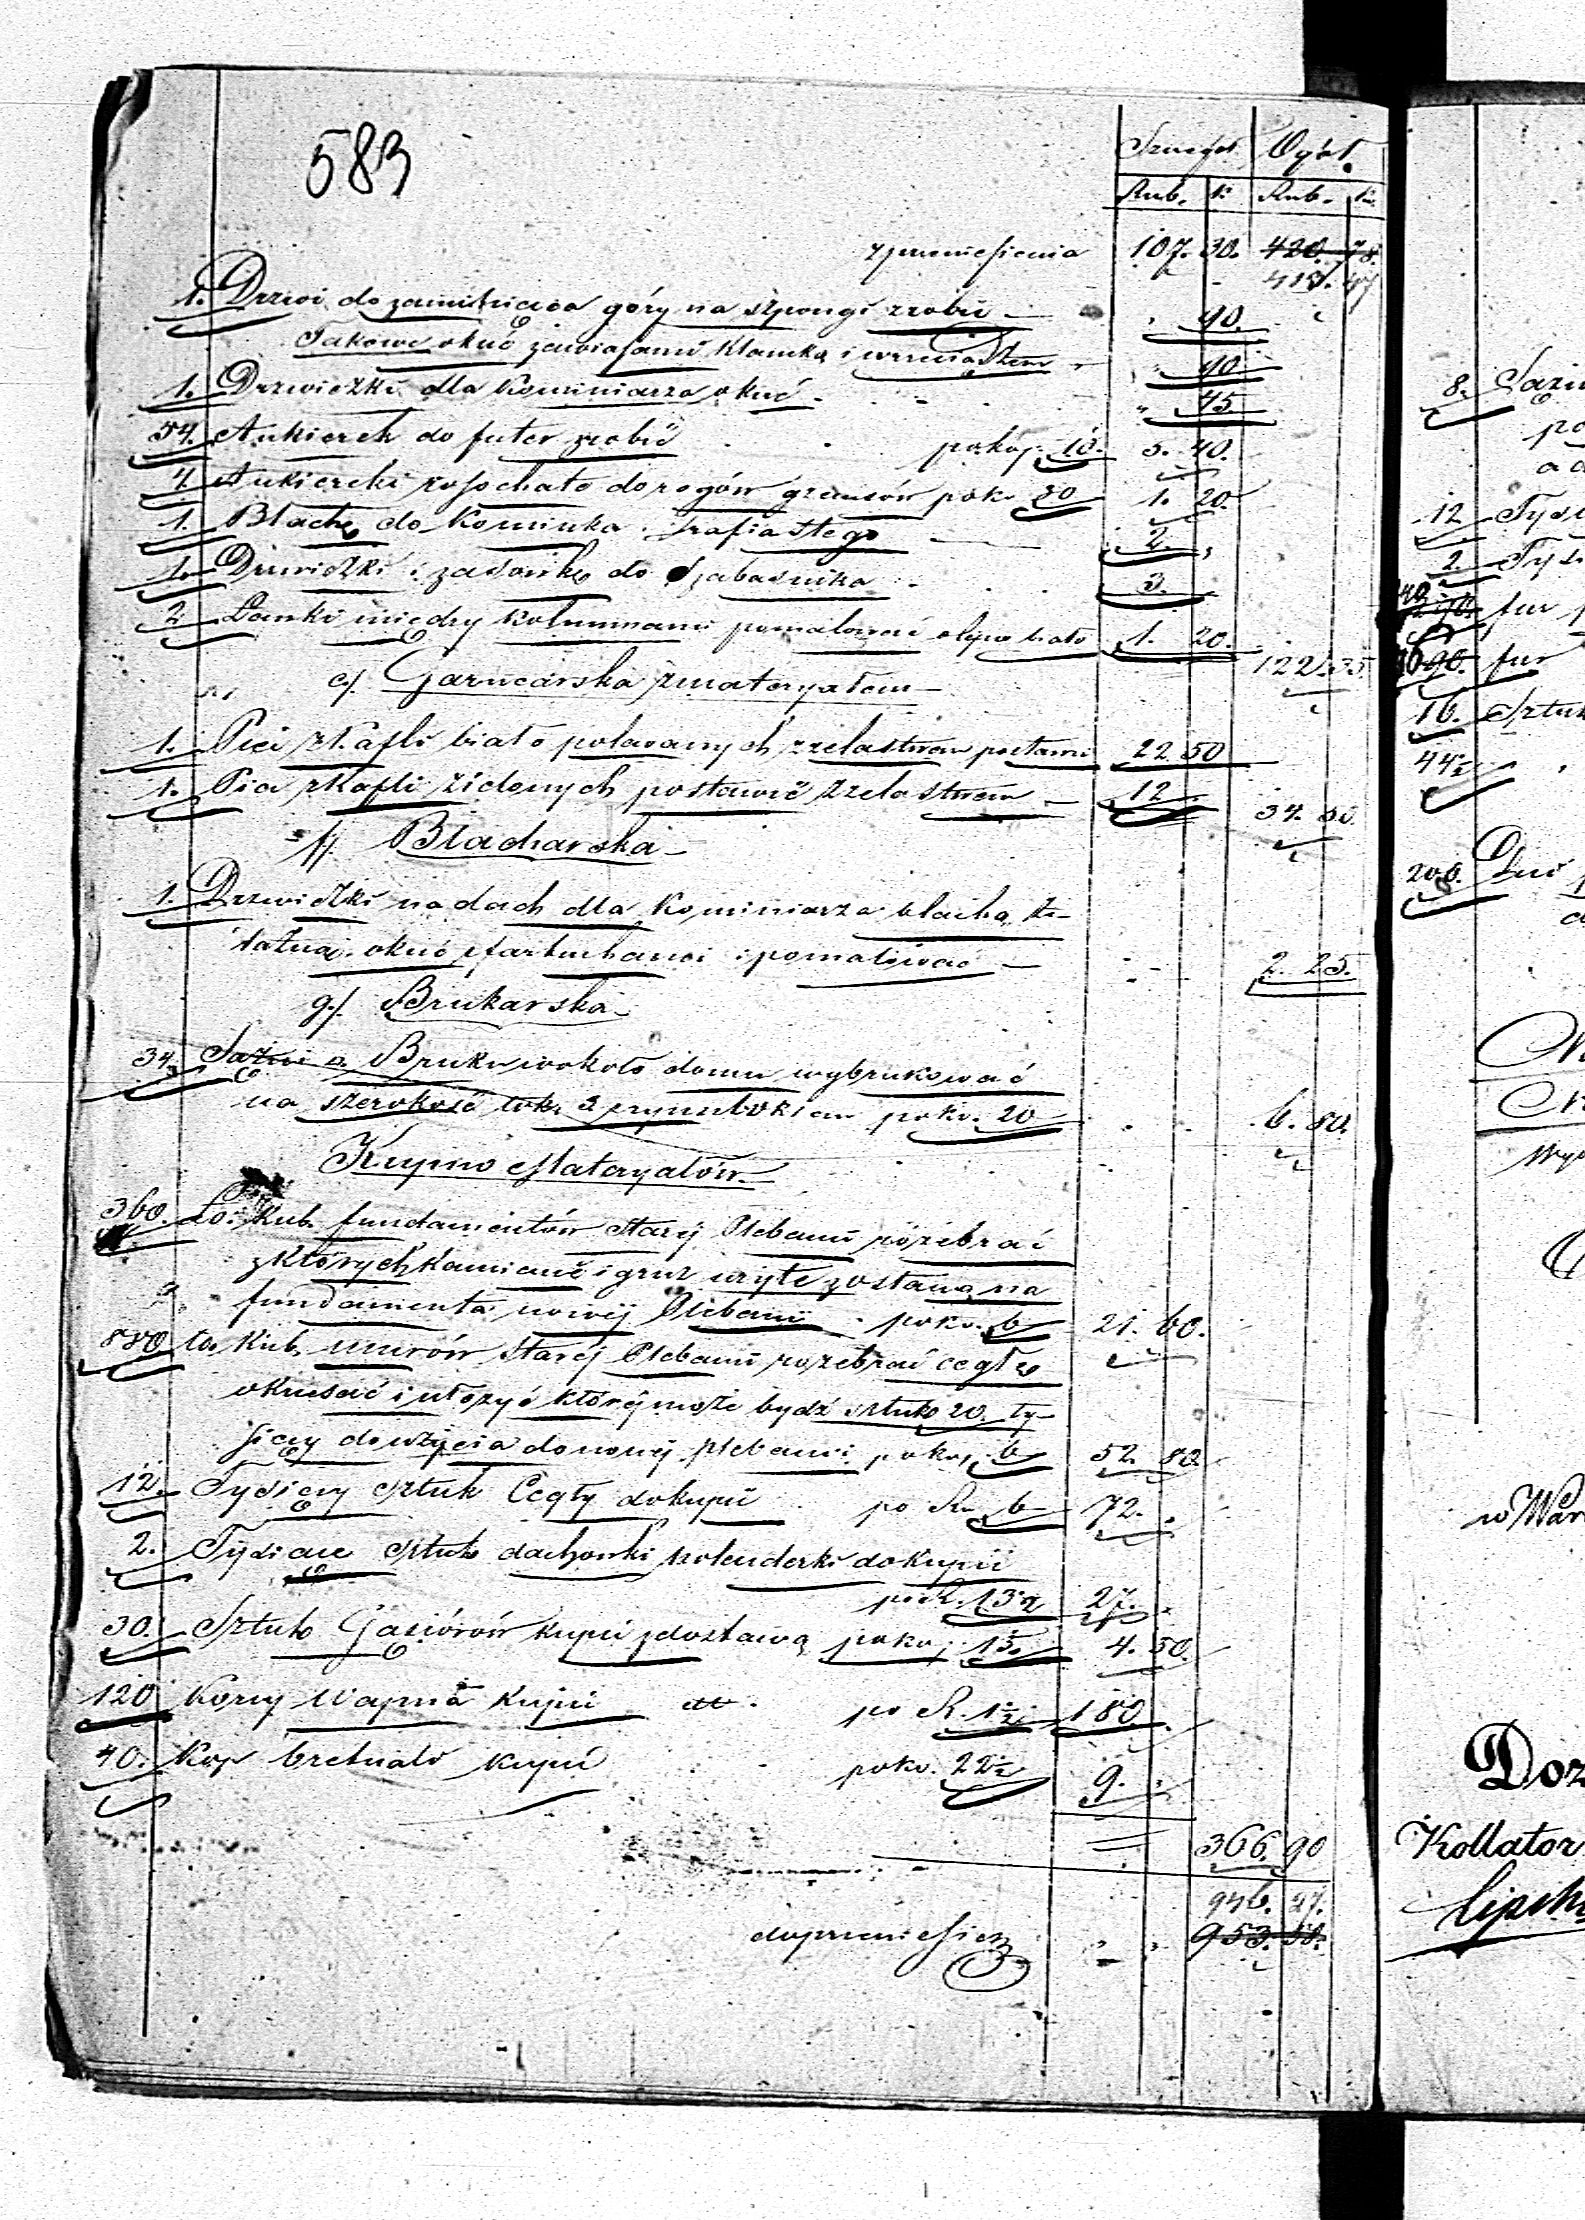 583
Szczegół. Ogół.
Rub. k. Rub. k.
z przeniesienia 107. 30. 420. 78.
417. 47
1. Drzwi do zamknięcia góry na szpongi zrobić — 90.
Takowe okuć zawiasami klamką i wrzeciążem 90.
1. Drzwiczki dla Kominiarza okuć 45
54. Ankierek do futer zrobić po kop. 10. 5. 40.
4. Ankierki rosochate do rogów gzemsów po k. 30 1. 20.
1. Blachę do Kominka szafiastego — 2.
1. Drzwiczki i zasówkę do Szabaśnika 3.
2 Ławki między kolumnami pomalować olejno biało 1. 20.
122. 35.
e/. Garncarska z materyałem
1. Piec z kafli biało polewanych z żelastwem postawić 22 50
1. Piec z kafli zielonych postawić z żelastwem — 12
34. 50.
f/. Blacharska
1. Drzwiczki na dach dla Kominiarza blachą że-
lazną okuć z fartuchami i pomalować — 2. 25.
g/. Brukarska
34. Sążni Bruku wokoło domu wybrukować
na szerokość łok. 2 z rynsztokiem po k. 20 6. 80.
Kupno Materyałów
360. Ło. Kub. fundamentów starej Plebanii rozebrać
z których kamienie i gruz użyte zostaną na
fundamenta nowej Plebanii po k. 6 21. 60.
880 ło. Kub. murów starej Plebanii rozebrać cegłę
okrzesać i ułożyć której może bydź sztuk 20. ty-
sięcy do użycia do nowej plebanii po kop. 6 52. 80
12. Tysięcy sztuk Cegły dokupić po R. 6 72.
2. Tysiące sztuk dachówki holenderki dokupić
po R. 13½ 27.
30. Sztuk Gąsiorów kupić z dostawą po kop. 15. 4. 50.
120 Korcy Wapna kupić po R. 1½ 180.
40. Kop bretnali kupić po k. 22½ 9.
366. 90
946. 27.
do przeniesienia 953. 58.
8. Sążni
po
a d
12 Tysi
2. Tysi
90. fur
90. fur
16. Sztuk
44½
200. Dni
w War
Doz
Kollator
Lipsk